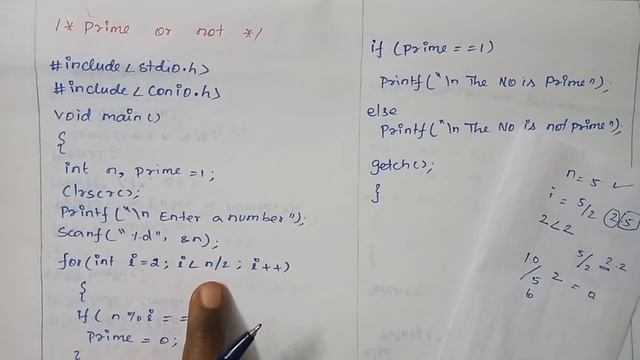 /* Prime or not */
#include<stdio.h>
#include<conio.h>
void main()
{
int n, prime=1;
clrscr();
printf("\n Enter a number");
scanf("%d", &n);
for(int i=2; i<n/2; i++)
{
if(n%i==
prime=0;
}
if (prime==1)
printf("\n The No is Prime");
else
printf("\n The No is not prime");
getch();
}
n=5 ✓
i=5/2 2.5
2<2